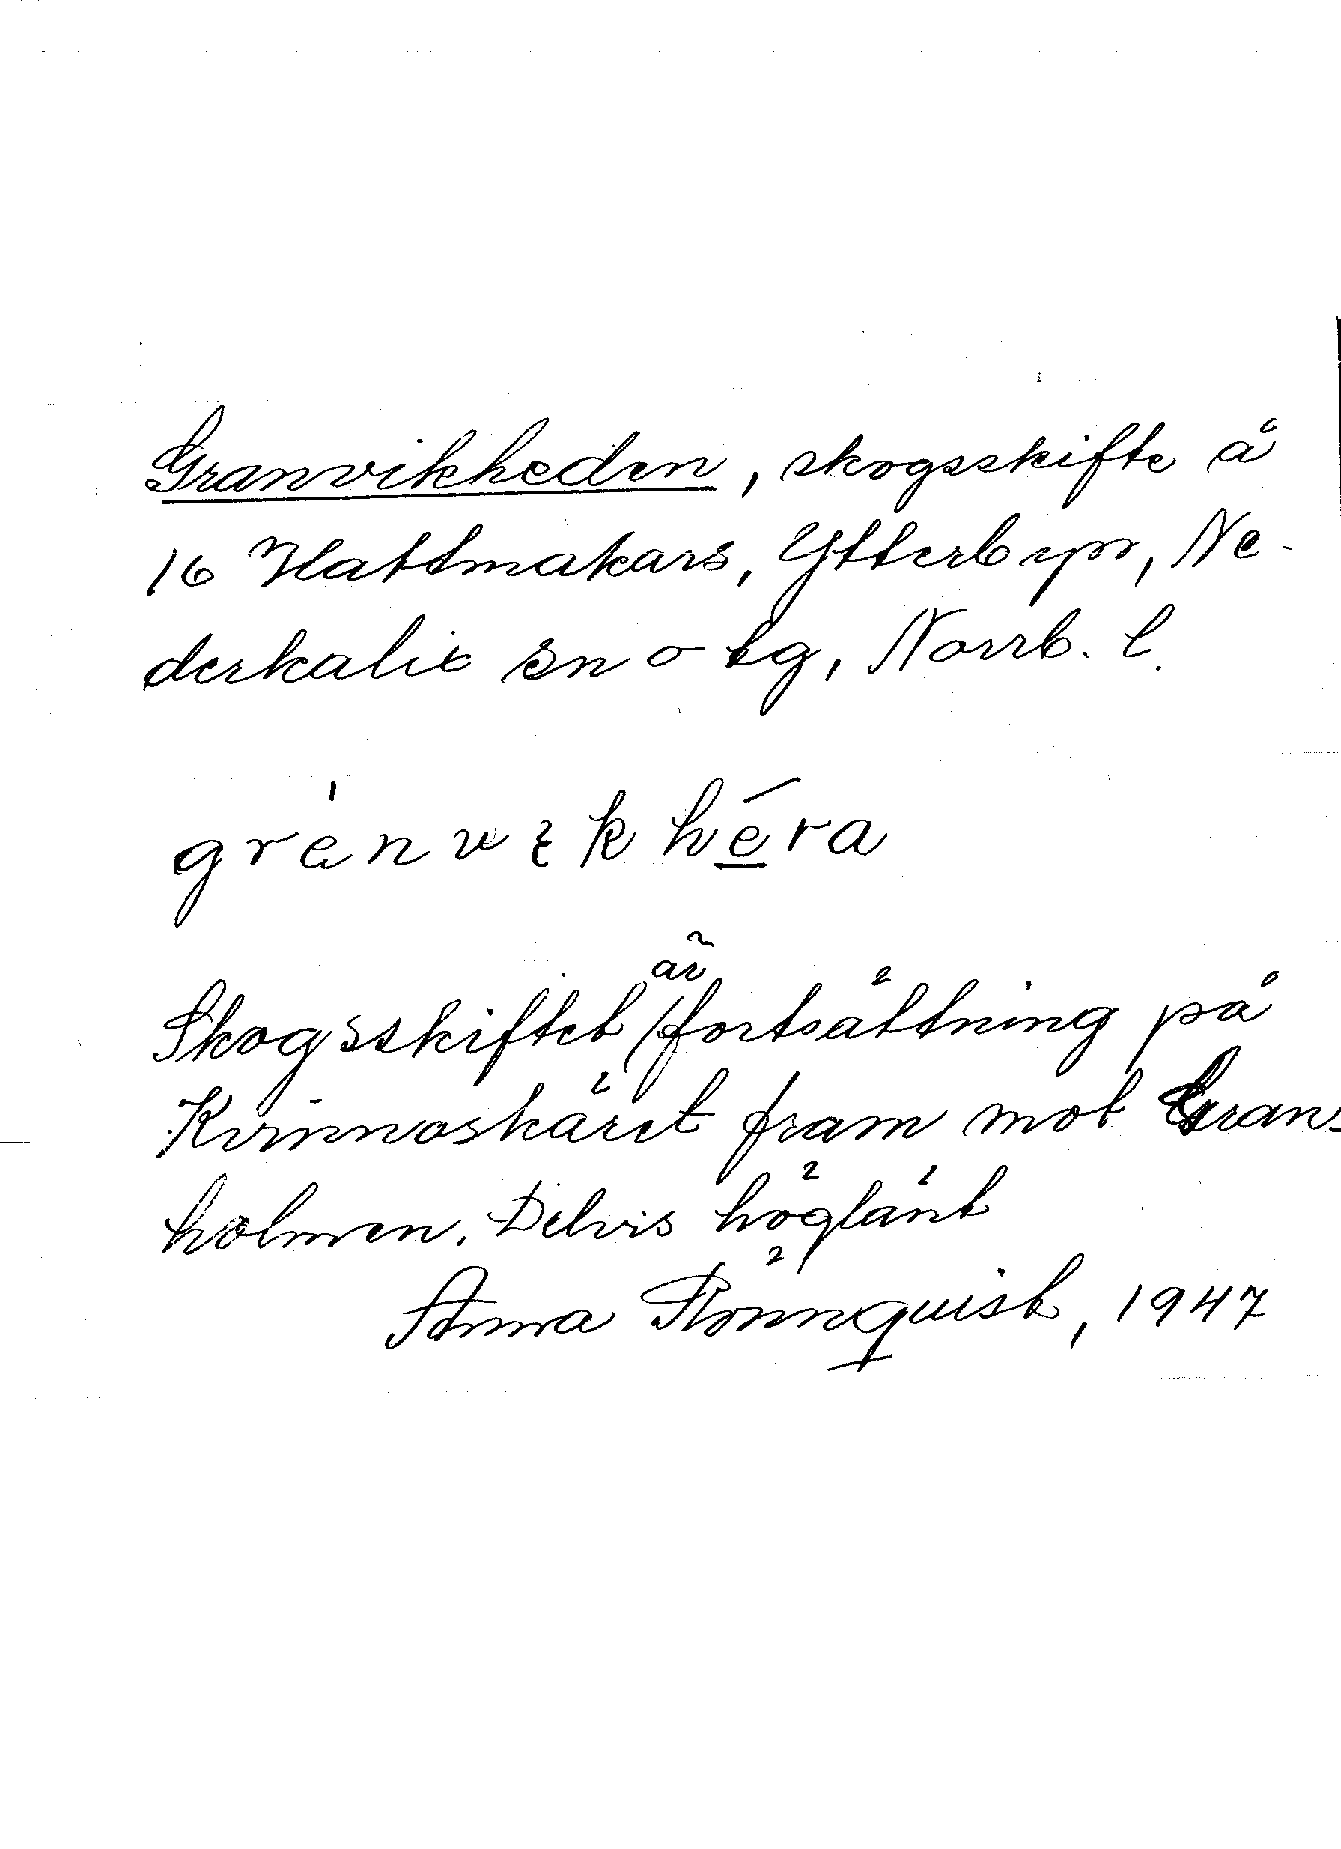 Granvikheden, skogsskifte å
16 Hattmakars, Ytterbyn, Ne-
derkalix sn o tg, Norrb. l.
gránvɩkhēra
Skogsskiftet är fortsättning på
Kvinnoskäret fram mot Gran-
holmen. Delvis höglänt
Anna Rönnquist, 1947